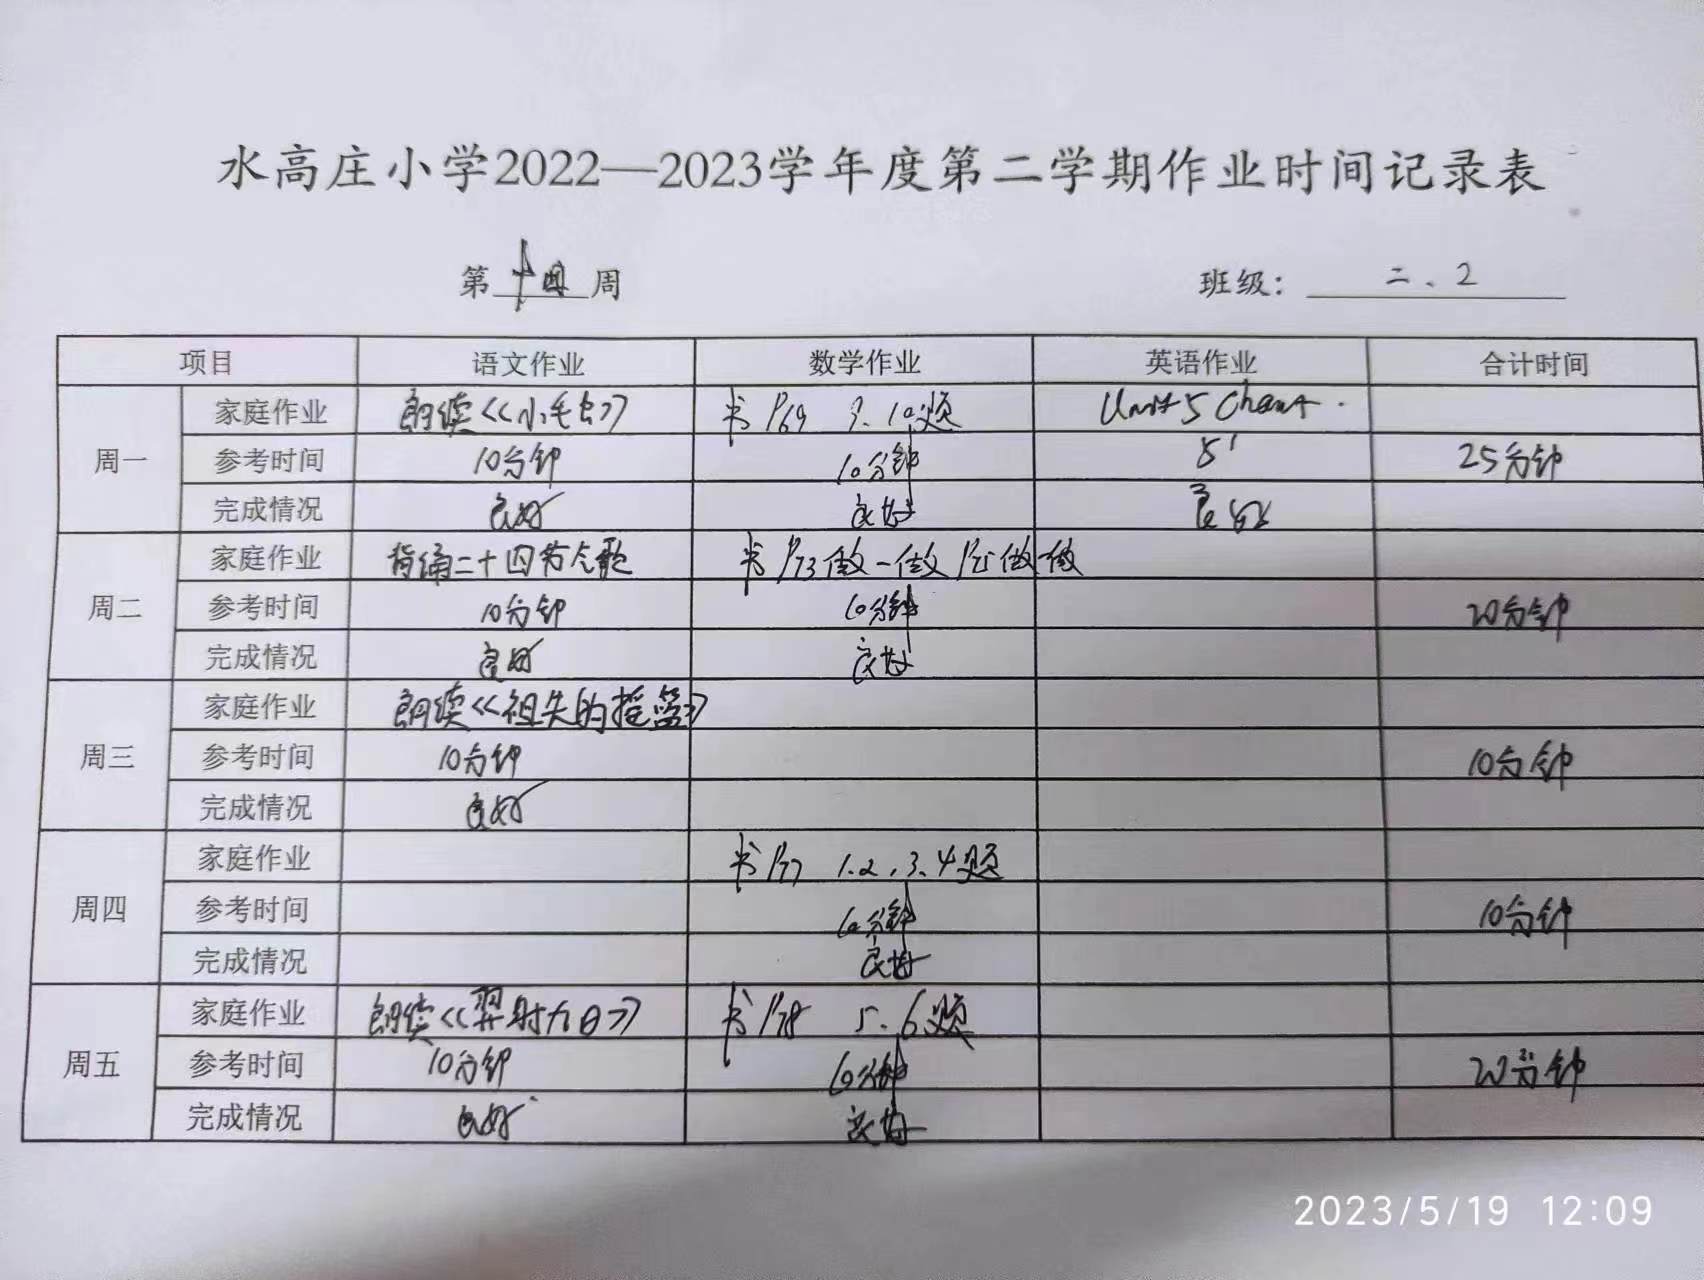 水高庄小学2022—2023学年度第二学期作业时间记录表
第十四周 班级：二、2
项目 语文作业 数学作业 英语作业 合计时间
周一
家庭作业 朗读《小毛虫》 书P69 9、10题 Unit 5 Chant.
参考时间 10分钟 10分钟 8' 25分钟
完成情况 良好 良好 良好
周二
家庭作业 背诵二十四节气歌 书P73做一做 做一做
参考时间 10分钟 10分钟 20分钟
完成情况 良好 良好
周三
家庭作业 朗读《祖先的摇篮》
参考时间 10分钟 10分钟
完成情况 良好
周四
家庭作业 书P77 1.2、3、4题
参考时间 10分钟 10分钟
完成情况 良好
周五
家庭作业 朗读《羿射九日》 书P78 5、6题
参考时间 10分钟 10分钟 20分钟
完成情况 良好 良好
2023/5/19 12:09